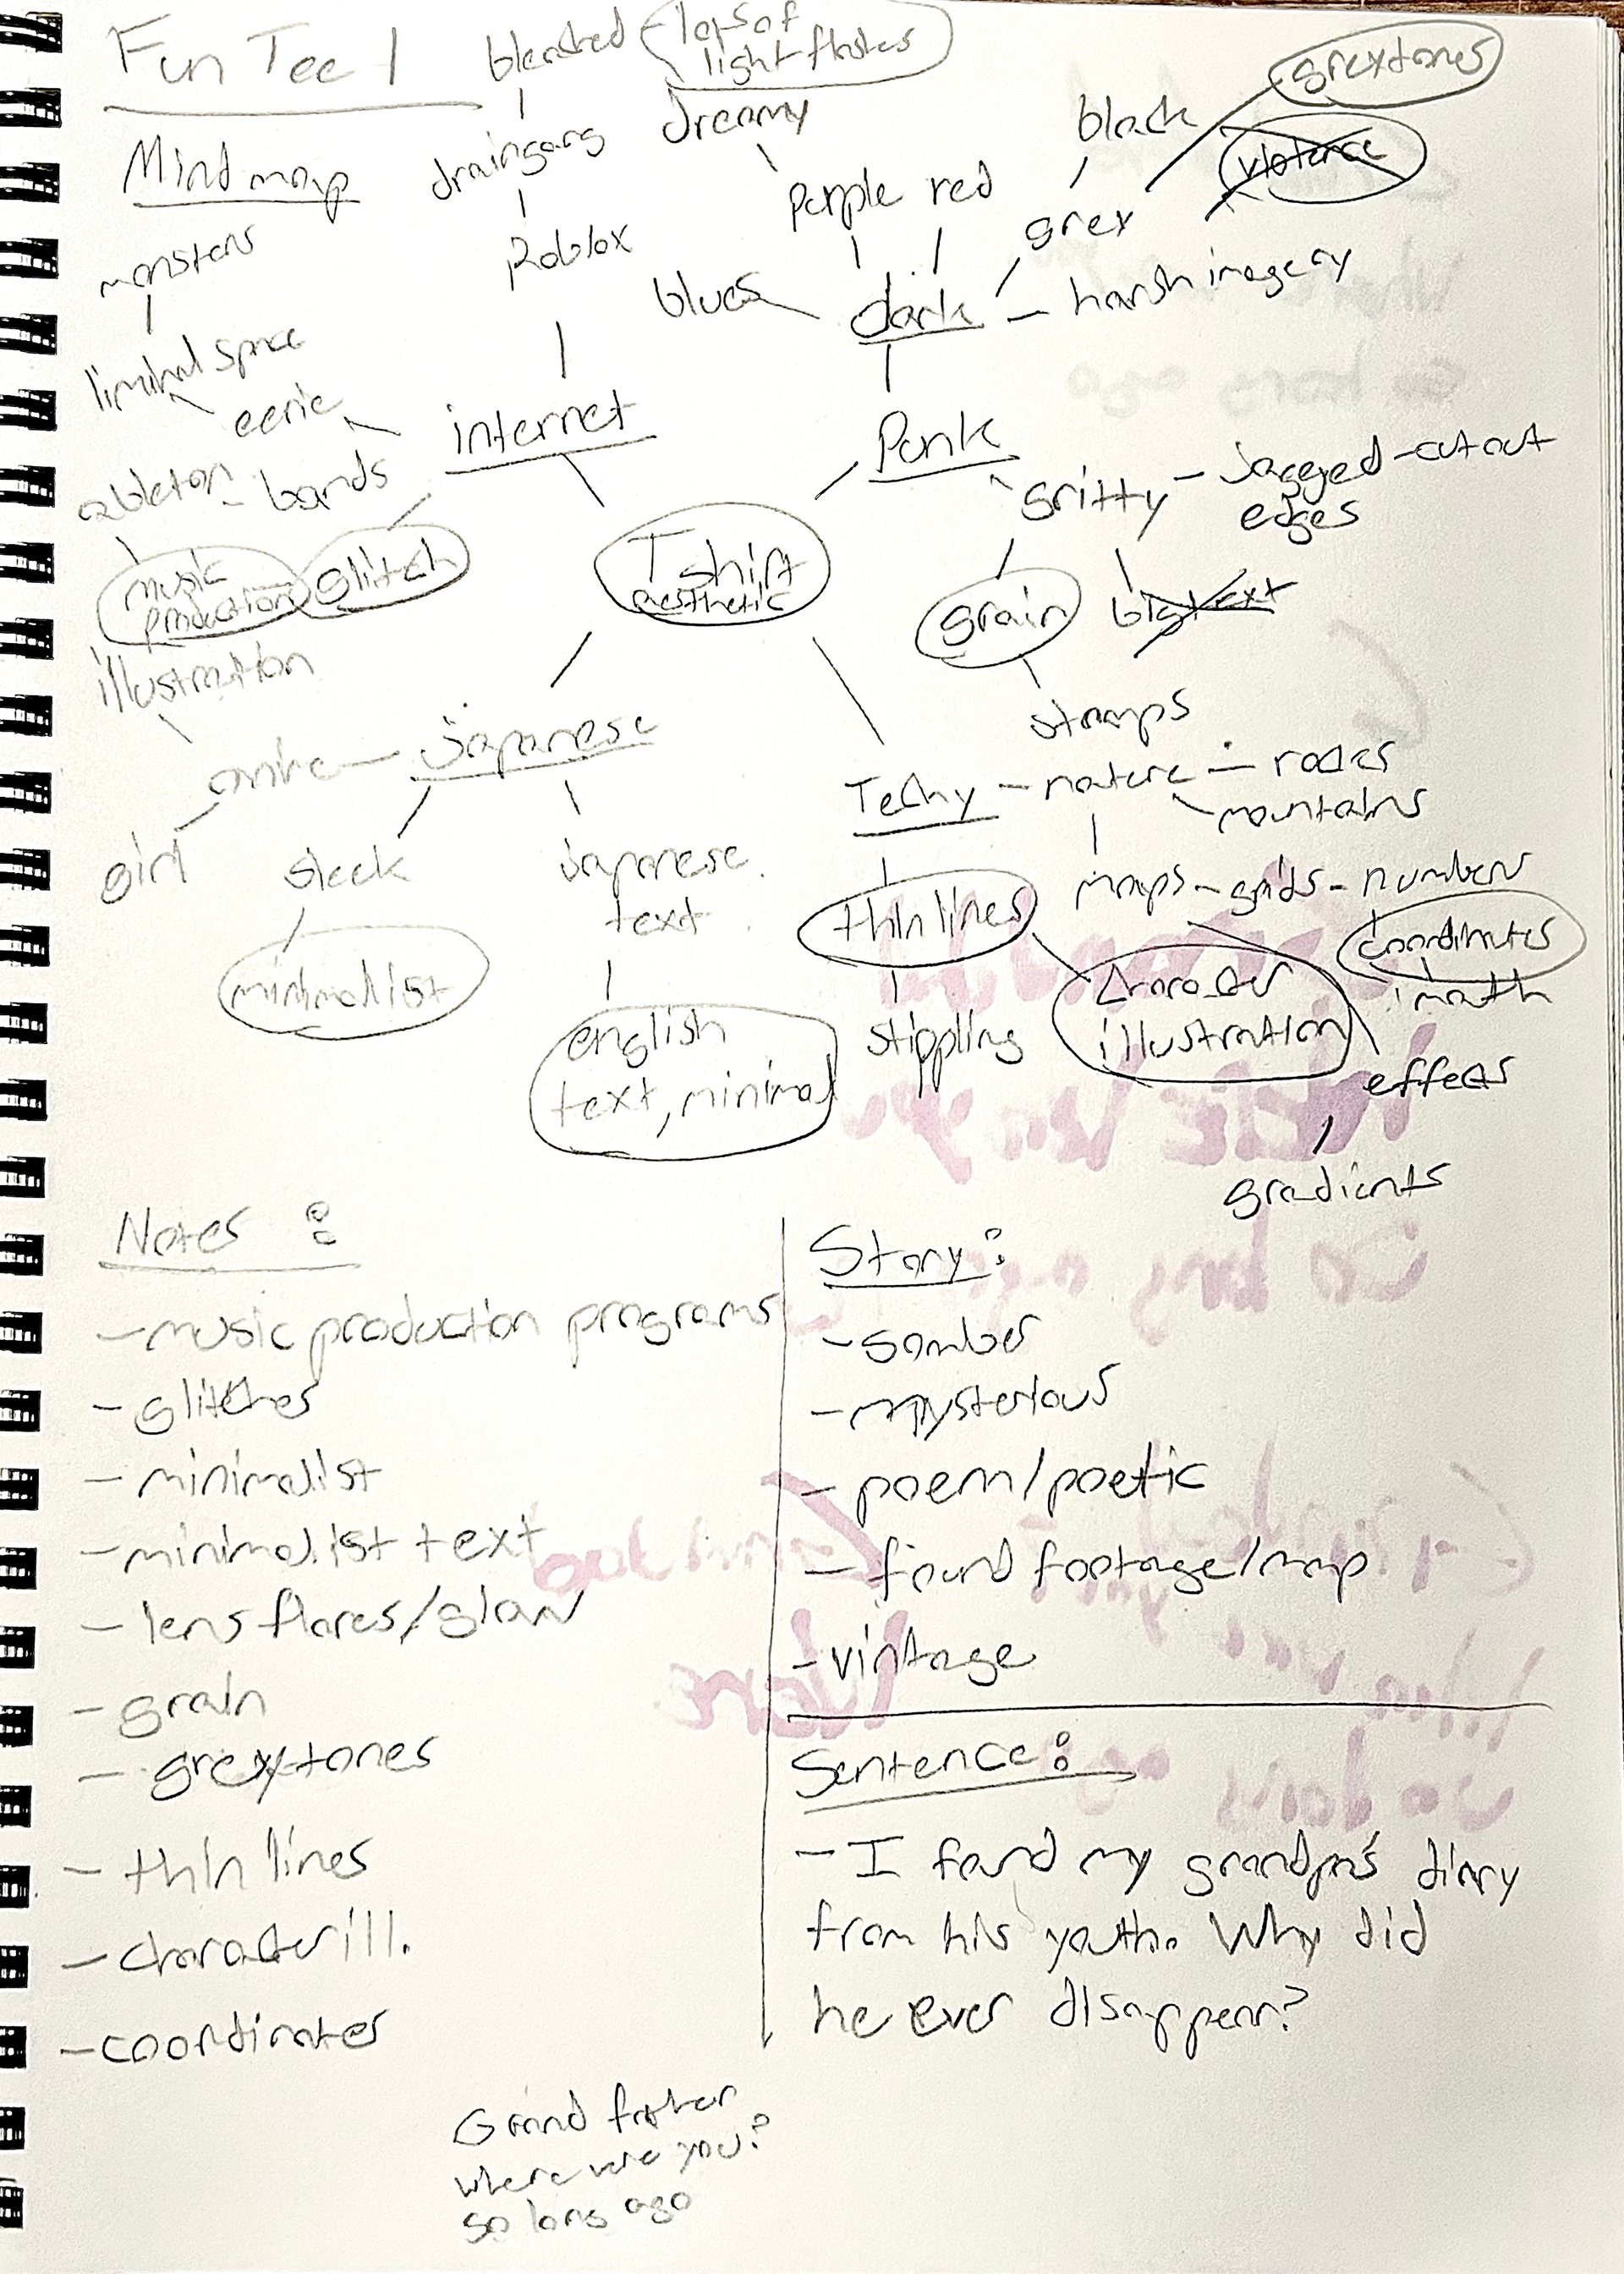 Fun Tee 1
bleached
lots of
light flashes
greytones
black
violence
Mind map
draingang
dreamy
purple
red
grey
monsters
Roblox
blues
dark
harsh imagery
liminal space
eerie
internet
Punk
gritty
jagged
cutout
edges
ableton
bands
music
production
glitch
T shirt
aesthetic
grain
big text
illustration
stamps
anime
Japanese
Techy
nature
rocks
mountains
girl
sleek
Japanese
text
thin lines
maps
grids
numbers
coordinates
math
minimalist
english
text, minimal
stippling
character
illustration
effects
gradients
Notes :
- music production programs
- glitches
- minimalist
- minimalist text
- lens flares/glow
- grain
- greytones
- thin lines
- character ill.
- coordinates
Story:
- somber
- mysterious
- poem/poetic
- found footage/map
- vintage
Sentence:
- I found my grandpa's diary
from his youth. Why did
he ever disappear?
Grand father
where were you?
so long ago